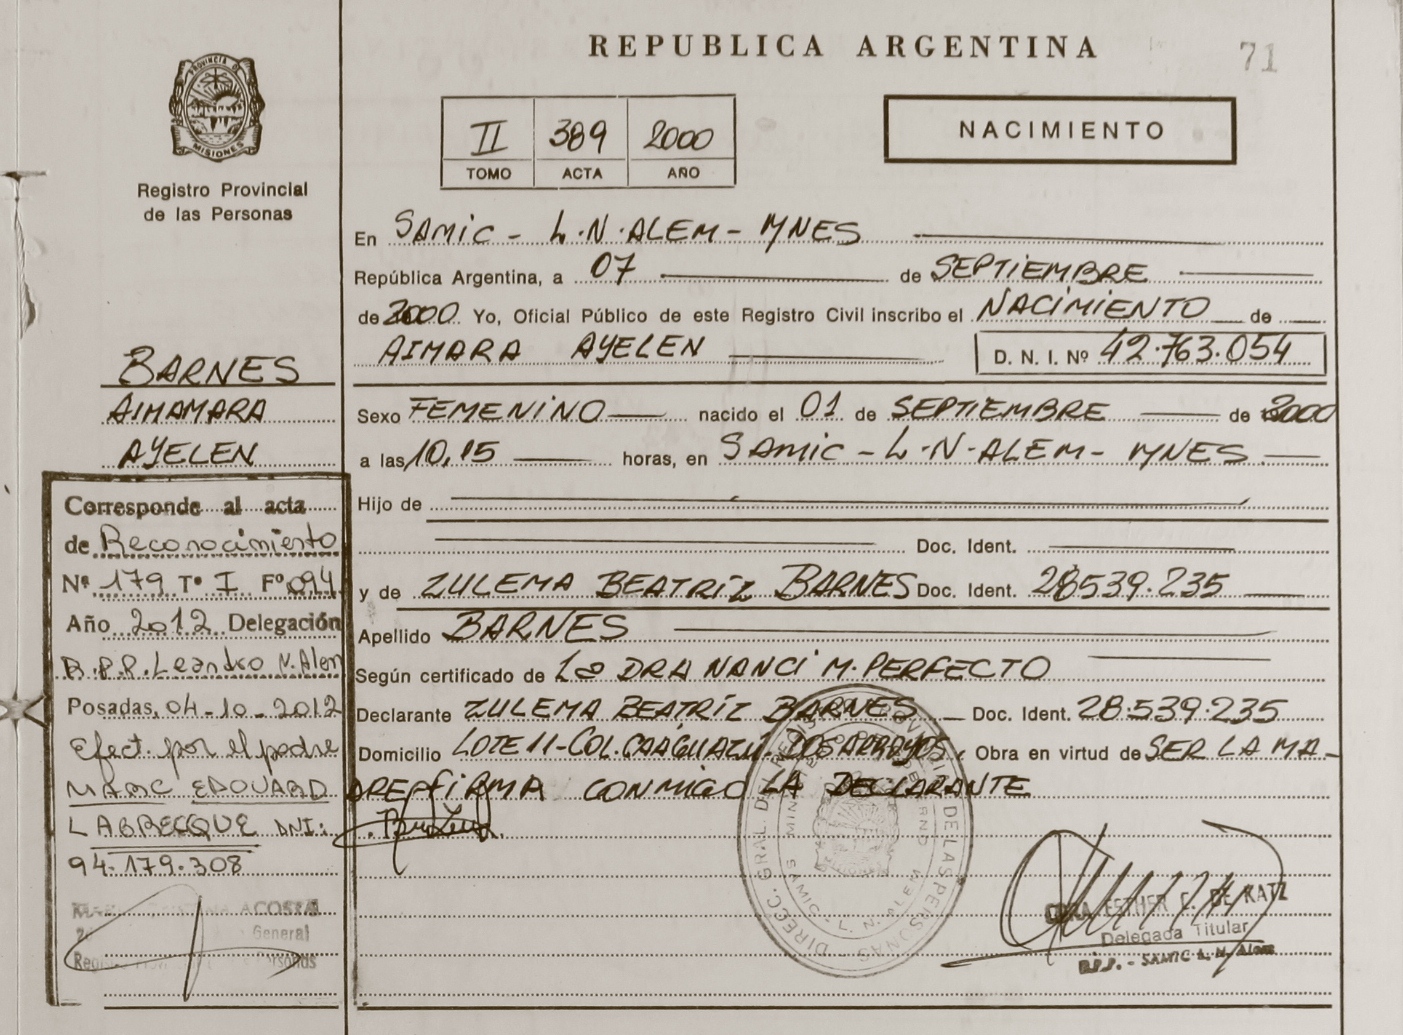 REPUBLICA ARGENTINA
71
PROVINCIA DE
MISIONES
Registro Provincial
de las Personas
II 389 2000
TOMO ACTA AÑO
NACIMIENTO
En SAMIC - L.N.ALEM - MNES
República Argentina, a 07 de SEPTIEMBRE
de 2000 Yo, Oficial Público de este Registro Civil inscribo el NACIMIENTO de
AIMARA AYELEN D. N. I. Nº 42.763.054
BARNES
AIMAMARA
AYELEN
Sexo FEMENINO nacido el 01 de SEPTIEMBRE de 2000
a las 10,15 horas, en SAMIC - L.N-ALEM - MNES
Hijo de
Doc. Ident.
y de ZULEMA BEATRIZ BARNES Doc. Ident. 28539.235
Apellido BARNES
Según certificado de La DRA NANCI M. PERFECTO
Declarante ZULEMA BEATRIZ BARNES Doc. Ident. 28.539.235
Domicilio LOTE 11-COL.CAAGUAZÚ. DOS ARROYOS, Obra en virtud de SER LA MA-
DRE FIRMA CONMIGO LA DECLARANTE
Corresponde al acta
de Reconocimiento
Nº 179 Tº I Fº 094
Año 2012 Delegación
R.P.P. Leandro N. Alem
Posadas, 04-10-2012
Efect. por el padre
MARC EDOUARD
LABRECQUE DNI:
94.179.308
ACOSTA
General
DIRECC. GRAL. DEL DE LAS PERSONAS
SAMIC - L. N. ALEM
ESTHER DE KATZ
Delegada Titular
R.P.P. - SAMIC L. N. Alem